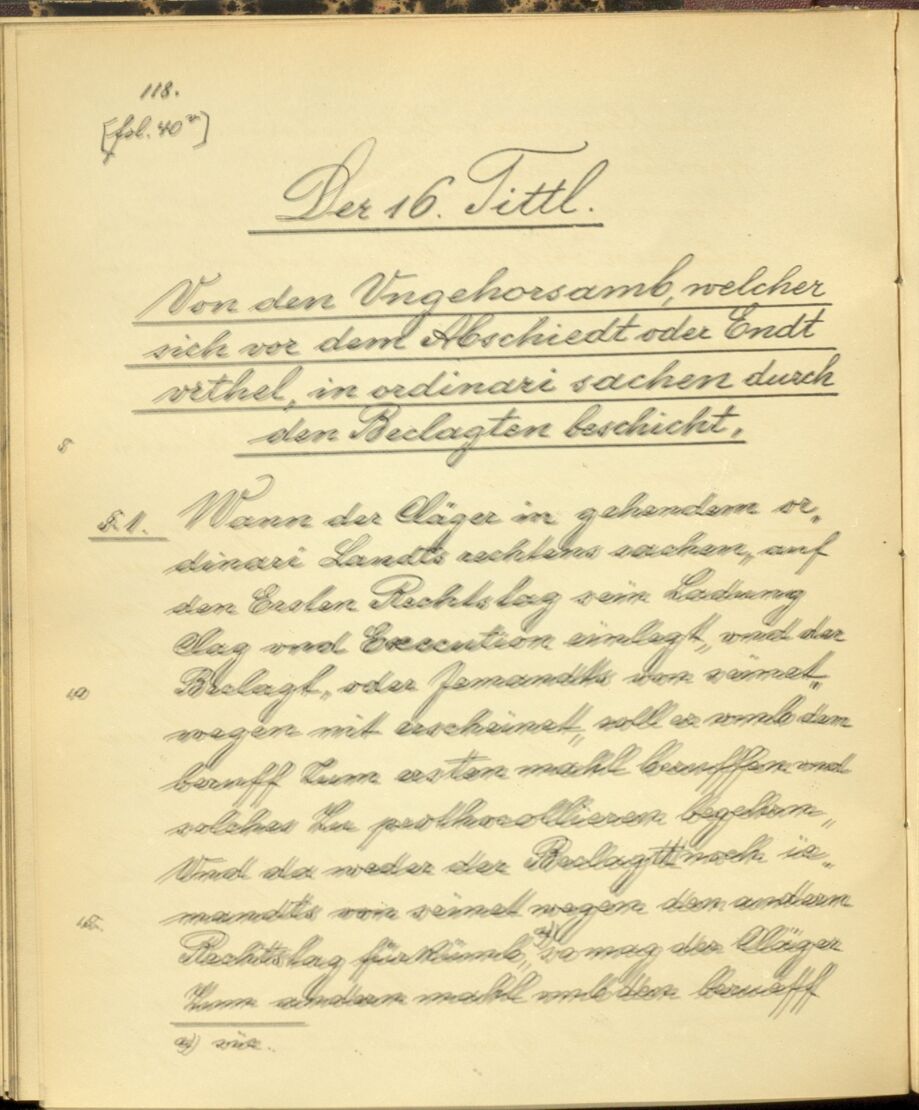 118.
[fol. 40v]
Der 16. Tittl.
Von den Vngehorsamb, welcher
sich vor dem Abschiedt oder Endt
vrthel, in ordinari sachen durch
den Beclagten beschicht.
5
§. 1. Wann der Cläger in gehendem or„
dinari Landts rechtens sachen, auf
den Ersten Rechtstag sein Ladung
Clag vnd Execution einlegt, vnd der
10 Beclagt, oder Jemandts von seinet„
wegen nit erscheinet, soll er vmb den
beruff Zum ersten mahl beruffen vnd
solches Zu prothocollieren begehrn,
Vnd da weder der Beclagtt noch ie„
15 mandts von seinet wegen den andern
Rechtstag für kümb, a) so mag der Cläger
Zum andern mahl vmb den berueff
a)